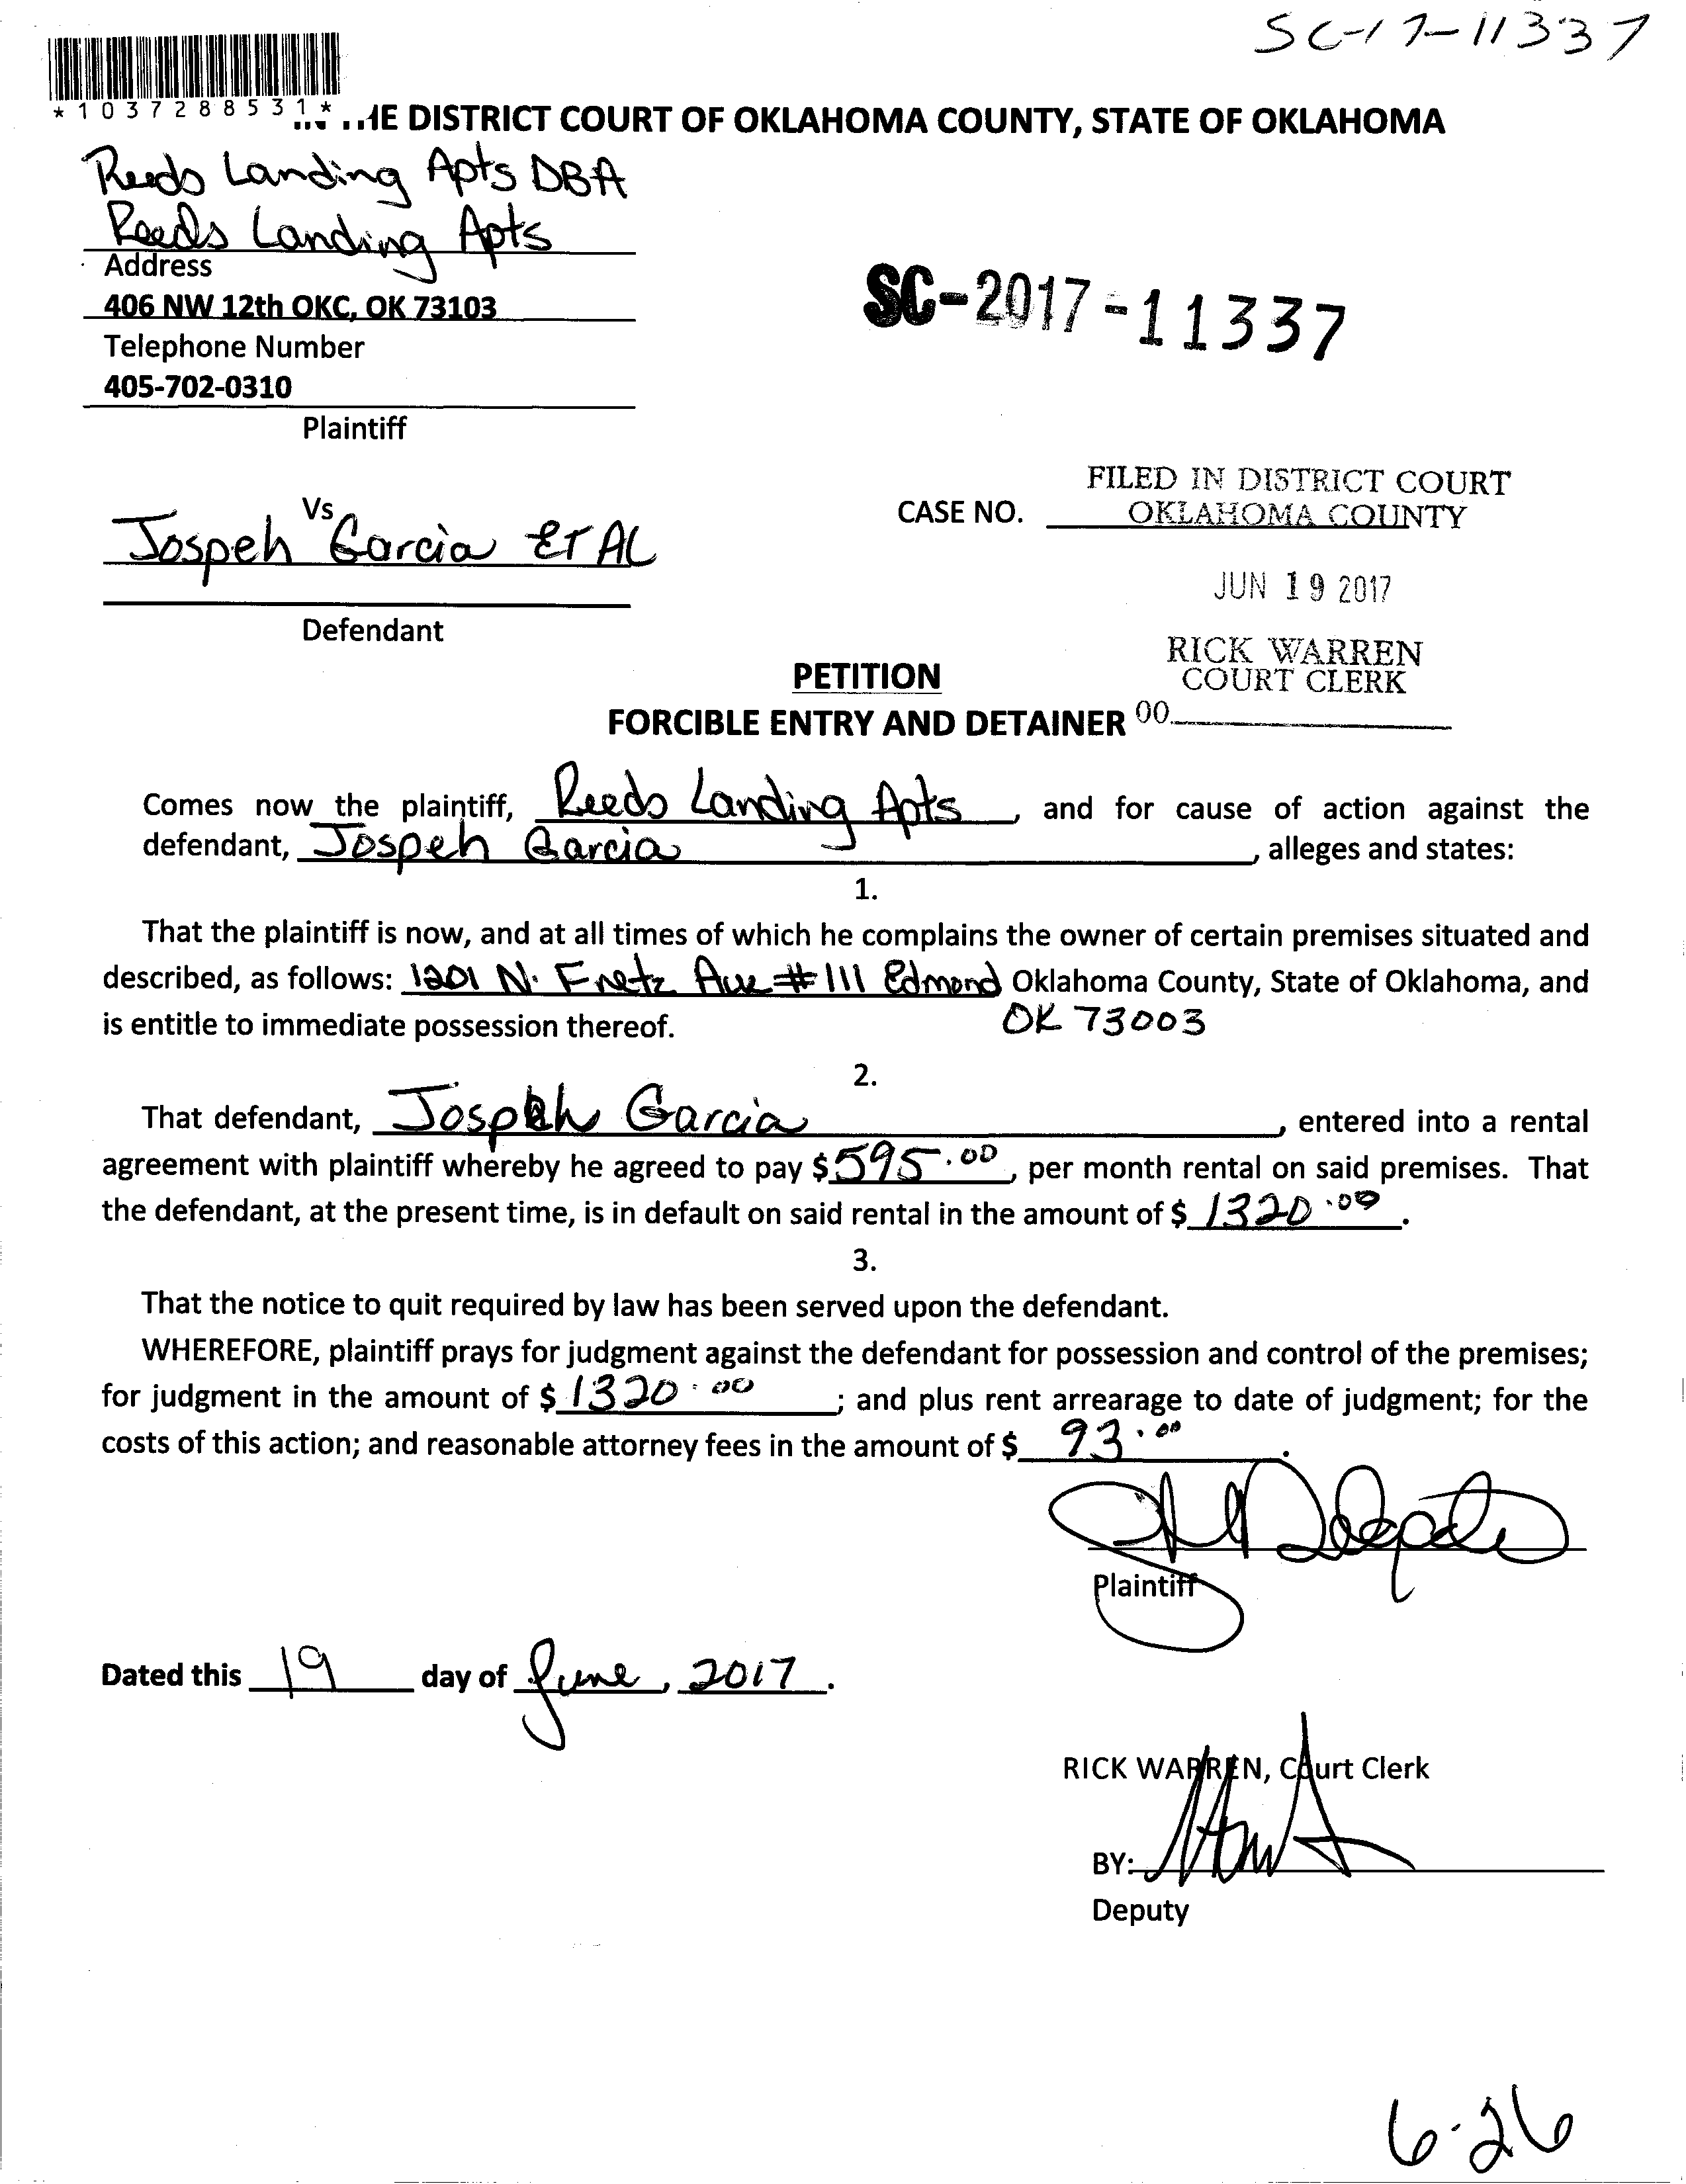 SC-17-11337
*1037288531*
HE DISTRICT COURT OF OKLAHOMA COUNTY, STATE OF OKLAHOMA
Reeds Landing Apts DBA
Reeds Landing Apts
Address
406 NW 12th OKC, OK 73103
SC-2017-11337
Telephone Number
405-702-0310
Plaintiff
FILED IN DISTRICT COURT
Vs
CASE NO. OKLAHOMA COUNTY
Jospeh Garcia ET AL
JUN 19 2017
Defendant
RICK WARREN
COURT CLERK
PETITION
FORCIBLE ENTRY AND DETAINER 00
Comes now the plaintiff, Reeds Landing Apts, and for cause of action against the
defendant, Jospeh Garcia, alleges and states:
1.
That the plaintiff is now, and at all times of which he complains the owner of certain premises situated and
described, as follows: 1201 N. Fretz Ave #111 Edmond Oklahoma County, State of Oklahoma, and
is entitle to immediate possession thereof. OK 73003
2.
That defendant, Jospeh Garcia, entered into a rental
agreement with plaintiff whereby he agreed to pay $595.00, per month rental on said premises. That
the defendant, at the present time, is in default on said rental in the amount of $ 1320.00.
3.
That the notice to quit required by law has been served upon the defendant.
WHEREFORE, plaintiff prays for judgment against the defendant for possession and control of the premises;
for judgment in the amount of $ 1320.00; and plus rent arrearage to date of judgment; for the
costs of this action; and reasonable attorney fees in the amount of $ 93.00.
Plaintiff
Dated this 19 day of June, 2017.
RICK WARREN, Court Clerk
BY:
Deputy
6-26